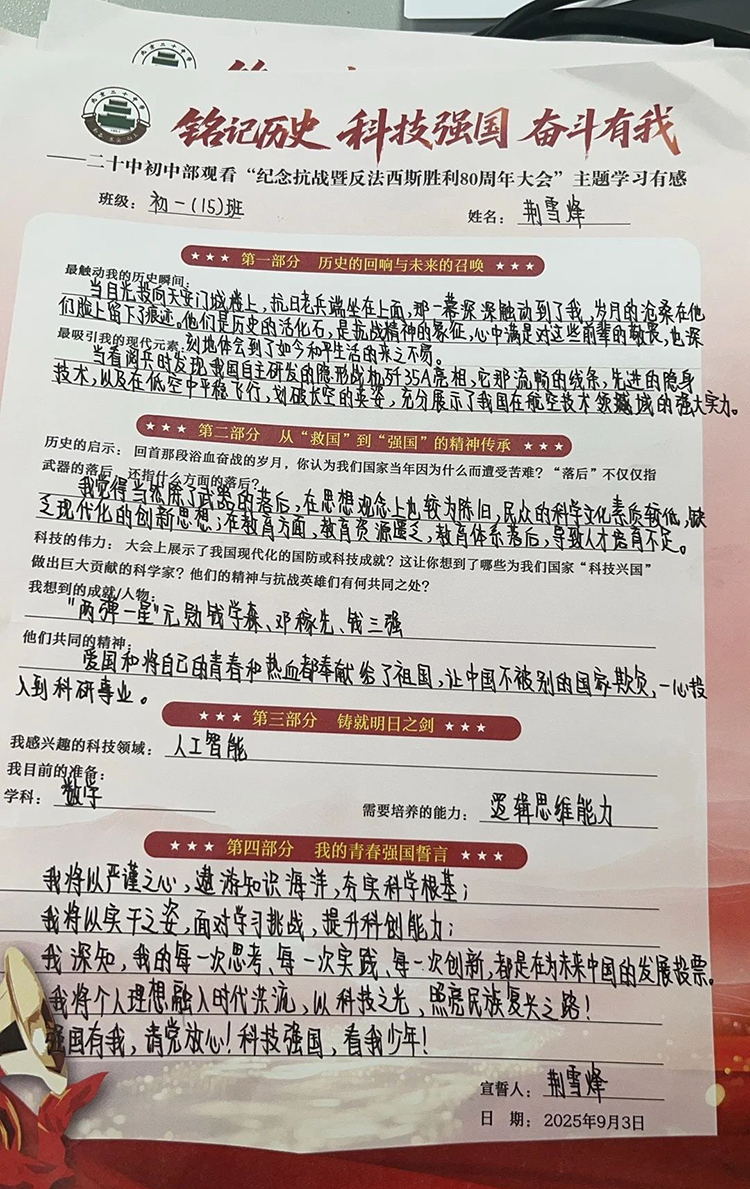 北京二十中学
铭记历史 科技强国 奋斗有我
——二十中初中部观看“纪念抗战暨反法西斯胜利80周年大会”主题学习有感
班级：初一(15)班 姓名：荆雪烽
★★★ 第一部分 历史的回响与未来的召唤 ★★★
最触动我的历史瞬间：
当目光投向天安门城楼上，抗日老兵端坐在上面，那一幕深深触动到了我，岁月的沧桑在他
们脸上留下了痕迹。他们是历史的活化石，是抗战精神的象征，心中满是对这些前辈的敬畏，也深
最吸引我的现代元素：刻地体会到了如今和平生活的来之不易。
当看阅兵时发现我国自主研发的隐形战机歼35A亮相，它那流畅的线条，先进的隐身
技术，以及在低空中平稳飞行，划破长空的英姿，充分展示了我国在航空技术领域的强大实力。
★★★ 第二部分 从“救国”到“强国”的精神传承 ★★★
历史的启示：回首那段浴血奋战的岁月，你认为我们国家当年因为什么而遭受苦难？“落后”不仅仅指
武器的落后，还指什么方面的落后？
我觉得当然除了武器的落后，在思想观念上也较为陈旧，民众的科学文化素质较低，缺
乏现代化的创新思想；在教育方面，教育资源匮乏，教育体系落后，导致人才培育不足。
科技的伟力：大会上展示了我国现代化的国防或科技成就？这让你想到了哪些为我们国家“科技兴国”
做出巨大贡献的科学家？他们的精神与抗战英雄们有何共同之处？
我想到的成就/人物：
“两弹一星”元勋钱学森、邓稼先、钱三强
他们共同的精神：
爱国和将自己的青春和热血都奉献给了祖国，让中国不被别的国家欺负，一心投
入到科研事业。
★★★ 第三部分 铸就明日之剑 ★★★
我感兴趣的科技领域：人工智能
我目前的准备：
学科：数学 需要培养的能力：逻辑思维能力
★★★ 第四部分 我的青春强国誓言 ★★★
我将以严谨之心，遨游知识海洋，夯实科学根基；
我将以实干之姿，面对学习挑战，提升科创能力；
我深知，我的每一次思考、每一次实践、每一次创新，都是在为未来中国的发展投票。
我将个人理想融入时代洪流，以科技之光，照亮民族复兴之路！
强国有我，请党放心！科技强国，看我少年！
宣誓人：荆雪烽
日 期：2025年9月3日